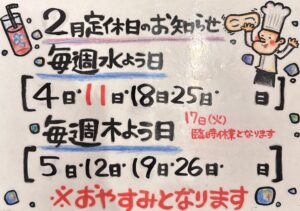 2月定休日のお知らせ
毎週水よう日
[4日・11日・18日・25日・　日]
毎週木よう日
17日(火)
臨時休業となります
[5日・12日・19日・26日・　日]
※おやすみとなります